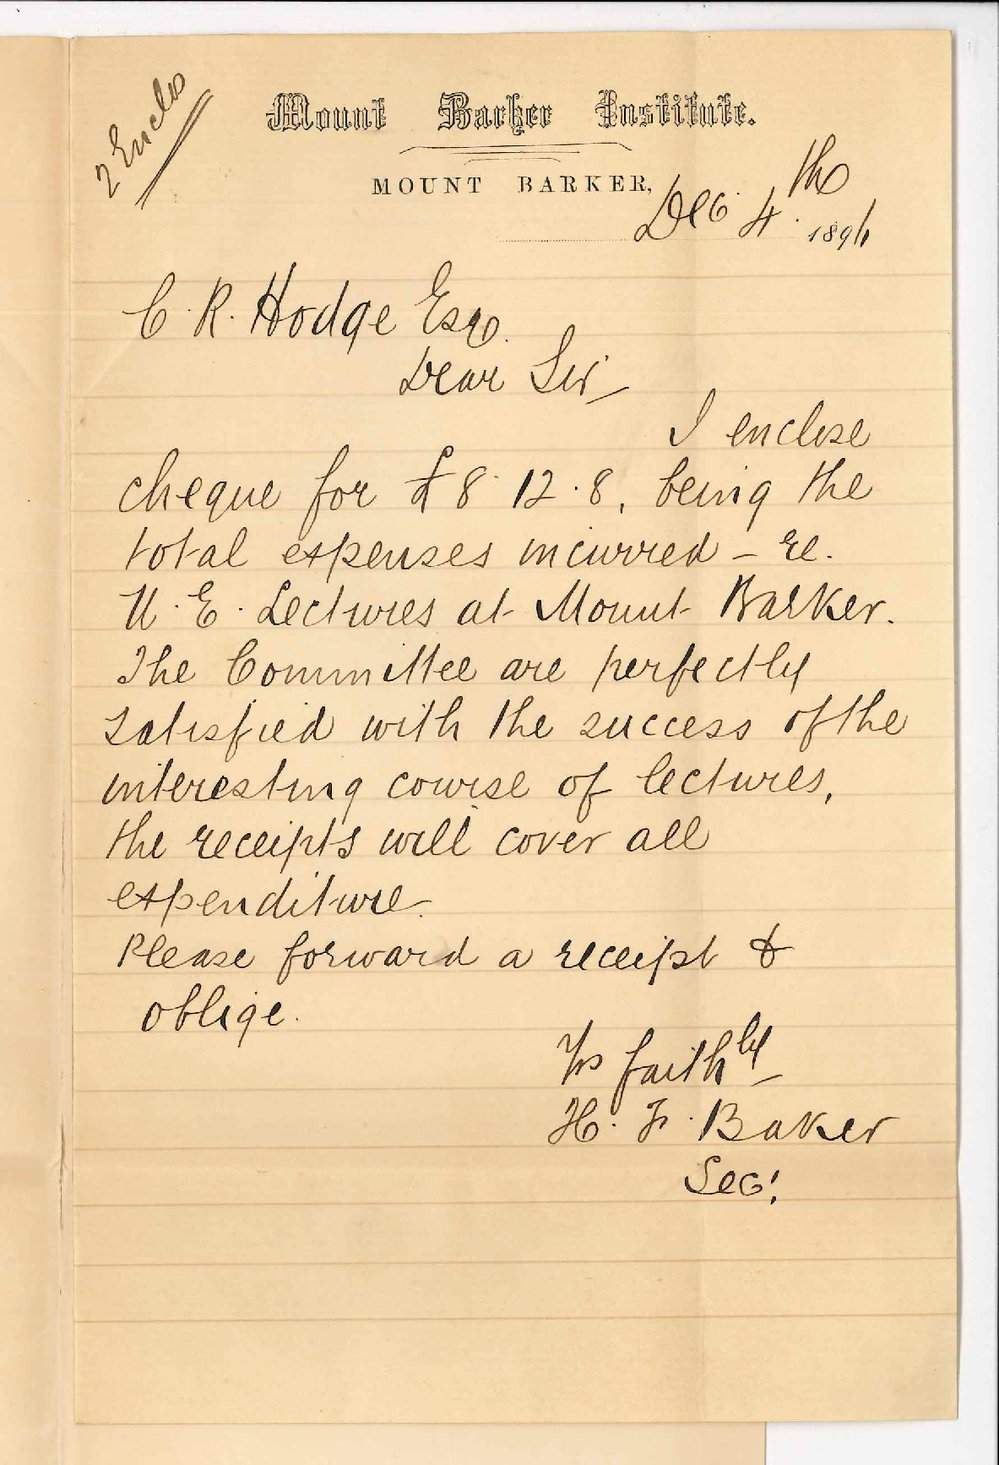 2 Enclo
Mount Barker Institute.
MOUNT BARKER,
Dec. 4th 1896
C. R. Hodge Esq.
Dear Sir
I enclose
cheque for £8.12.8, being the
total expenses incurred - re.
U. E. Lectures at Mount Barker.
The Committee are perfectly
satisfied with the success of the
interesting course of lectures,
the receipts will cover all
expenditure.
Please forward a receipt &
oblige.
Yrs faithly
H. F. Baker
Sec!